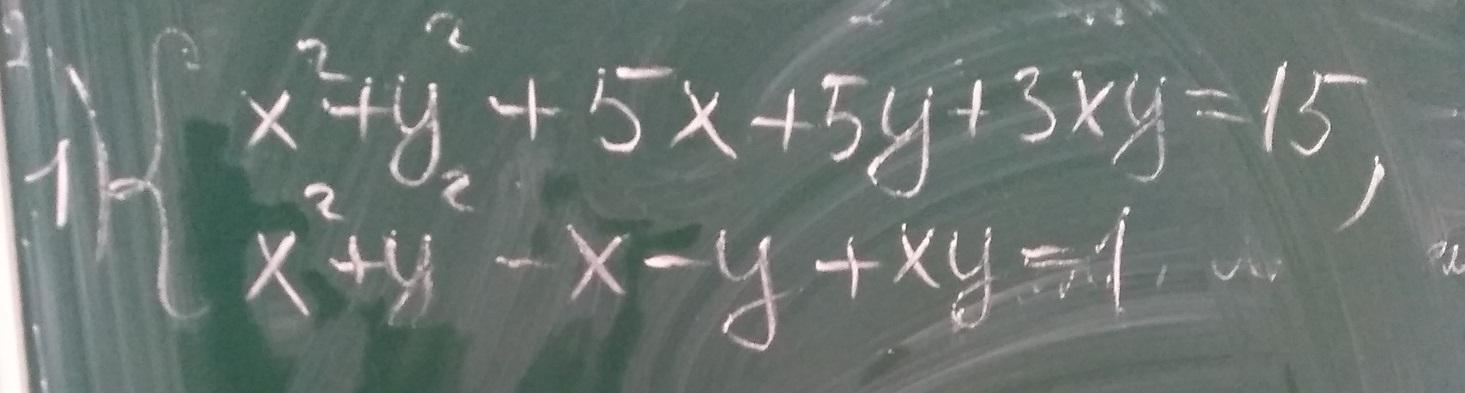 1) { x² + y² + 5x + 5y + 3xy = 15,
x² + y² - x - y + xy = 1.